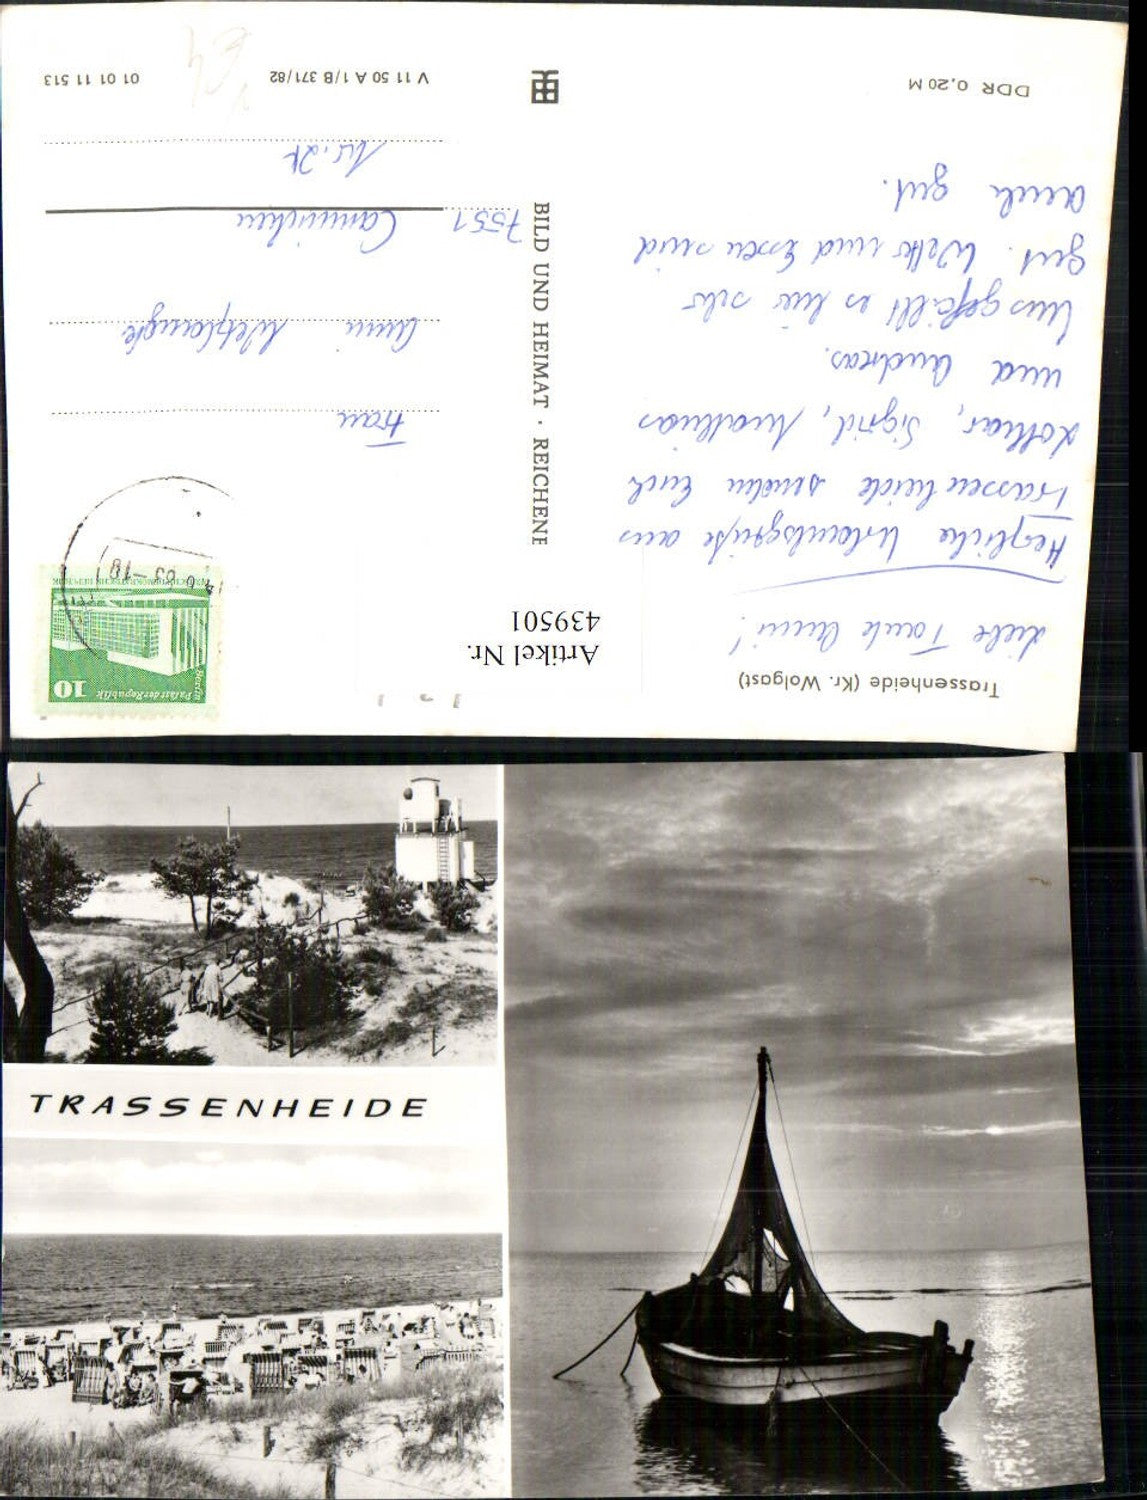 Trassenheide (Kr. Wolgast)
Liebe Tante Anni!
Herzliche Urlaubsgrüße aus
Trassenheide senden Euch
Lothar, Sigrid, Matthias
und Andreas.
Uns gefällt es hier sehr
gut. Wetter und Essen sind
auch gut.
DDR 0,20 M
BILD UND HEIMAT · REICHENB
Artikel Nr.
439501
Berlin
Palast der Republik
10
Frau
Anni
7551 Caminchen
Nr. 24
V 11 50 A 1/B 371/82
01 01 11 513
TRASSENHEIDE